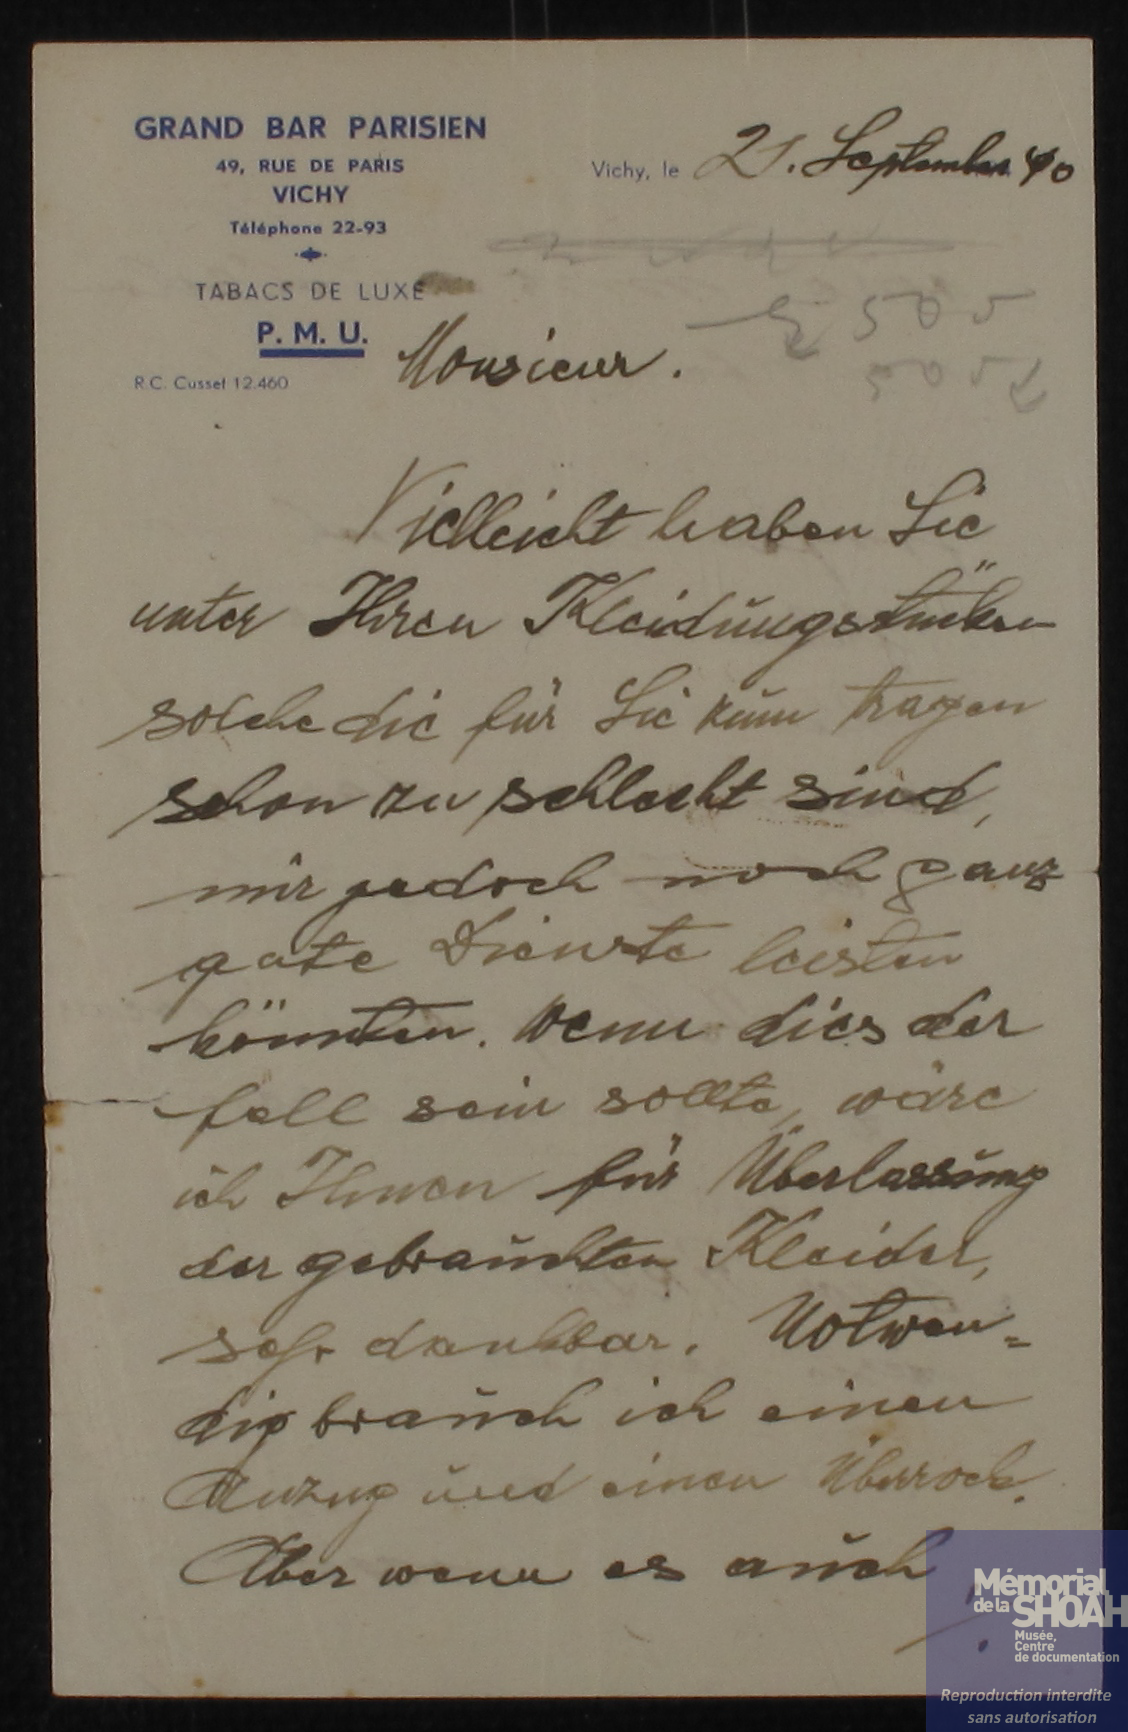 GRAND BAR PARISIEN
49, RUE DE PARIS
VICHY
Téléphone 22-93
TABACS DE LUXE
P. M. U.
R.C. Cusset 12.460
Vichy, le 21. September 40
505
505
Monsieur.
Vielleicht haben Sie
unter Ihren Kleidungsstücken
solche die für Sie zum tragen
schon zu schlecht sind,
mir jedoch noch ganz
gute Dienste leisten
könnten. Wenn dies der
fall sein sollte, wäre
ich Ihnen für Überlassung
der gebrauchten Kleider,
sehr dankbar. Notwen=
dig brauch ich einen
Anzug und einen Überrock.
Aber wenn es auch
Mémorial
de la SHOAH
Musée,
Centre
de documentation
Reproduction interdite
sans autorisation